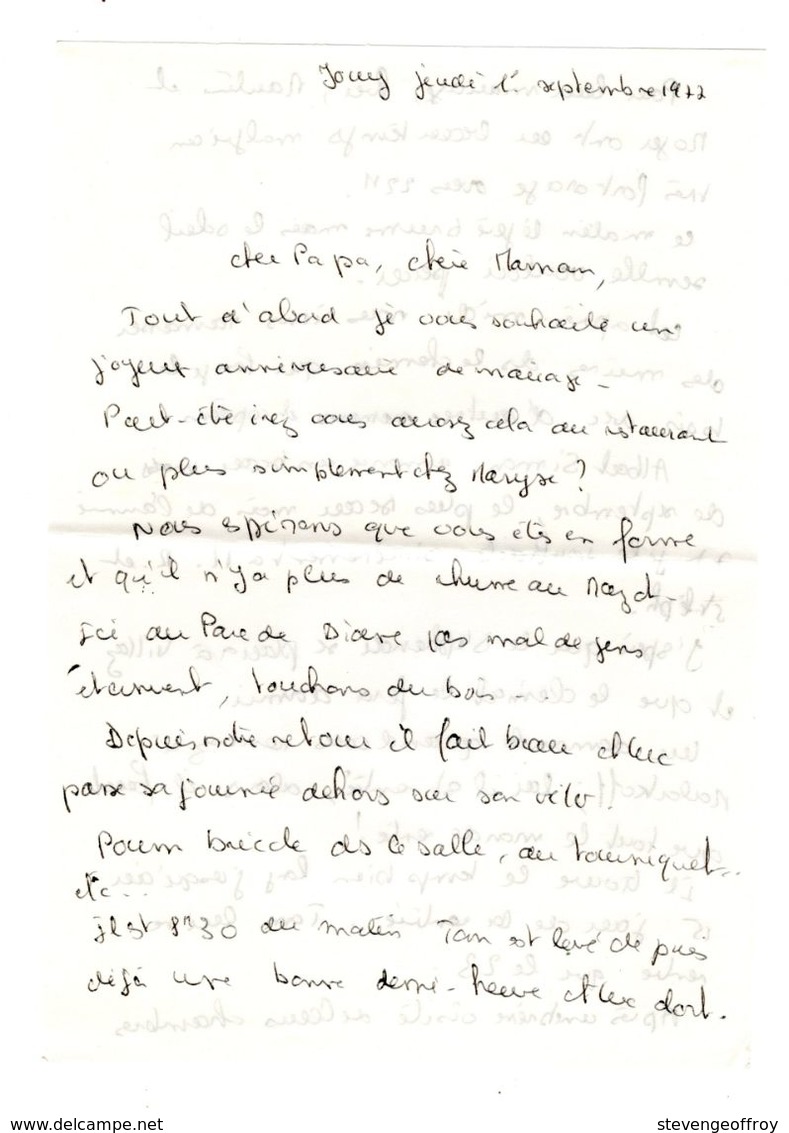 Jouy jeudi 1er septembre 1977
cher Papa, chère Maman,
Tout d'abord je vous souhaite un
joyeux anniversaire de mariage -
Peut-être irez vous arroser cela au restaurant
ou plus simplement chez Maryse ?
Nous espérons que vous êtes en forme
et qu'il n'y a plus de rhume au
Ici au Parc de Diane pas mal de gens
éternuent, touchons du bois...
Depuis notre retour il fait beau et Luc
passe sa journée dehors sur son vélo !
Poum bricole ds la salle, au tourniquet...
etc...
Il est 8h30 du matin Tom est levé depuis
déjà une bonne demi-heure et Luc dort.
delcampe.net
stevengeoffroy